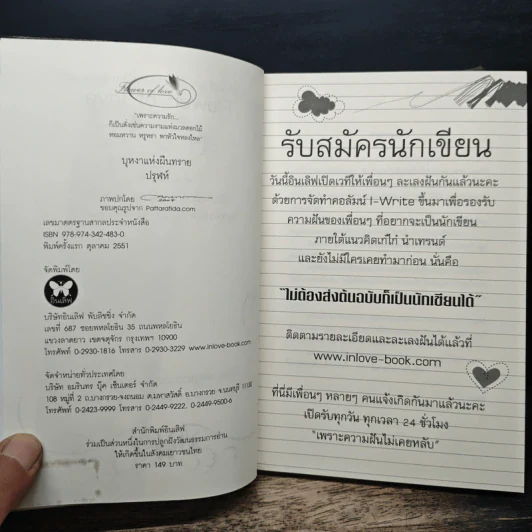 Flower of love
"เพราะความรัก...
ก็เป็นดั่งเช่นความงามแห่งมวลดอกไม้
หอมหวาน หรูหรา พาหัวใจหลงใหล"
บุหงาแห่งผืนทราย
ปรุฬห์
ภาพปกโดย
ขอบคุณรูปจาก Pattaratida.com
เลขมาตรฐานสากลประจำหนังสือ
ISBN 978-974-342-483-0
พิมพ์ครั้งแรก ตุลาคม 2551
จัดพิมพ์โดย
อินเลิฟ
บริษัทอินเลิฟ พับลิชชิ่ง จำกัด
เลขที่ 687 ซอยพหลโยธิน 35 ถนนพหลโยธิน
แขวงลาดยาว เขตจตุจักร กรุงเทพฯ 10900
โทรศัพท์ 0-2930-1816 โทรสาร 0-2930-3229 www.inlove-book.com
จัดจำหน่ายทั่วประเทศโดย
บริษัท อมรินทร์ บุ๊ค เซ็นเตอร์ จำกัด
108 หมู่ที่ 2 ถ.บางกรวย-จงถนอม ต.มหาสวัสดิ์ อ.บางกรวย จ.นนทบุรี 11130
โทรศัพท์ 0-2423-9999 โทรสาร 0-2449-9222, 0-2449-9500-6
สำนักพิมพ์อินเลิฟ
ร่วมเป็นส่วนหนึ่งในการปลูกฝังวัฒนธรรมการอ่าน
ให้เกิดขึ้นในสังคมเยาวชนไทย
ราคา 149 บาท
รับสมัครนักเขียน
วันนี้อินเลิฟเปิดเวทีให้เพื่อนๆ ละเลงฝันกันแล้วนะคะ
ด้วยการจัดทำคอลัมน์ I-Write ขึ้นมาเพื่อรองรับ
ความฝันของเพื่อนๆ ที่อยากจะเป็นนักเขียน
ภายใต้แนวคิดเก๋ไก๋ นำเทรนด์
และยังไม่มีใครเคยทำมาก่อน นั่นคือ
"ไม่ต้องส่งต้นฉบับก็เป็นนักเขียนได้"
ติดตามรายละเอียดและละเลงฝันได้แล้วที่
www.inlove-book.com
ที่นี่มีเพื่อนๆ หลายๆ คนแจ้งเกิดกันมาแล้วนะคะ
เปิดรับทุกวัน ทุกเวลา 24 ชั่วโมง
"เพราะความฝันไม่เคยหลับ"